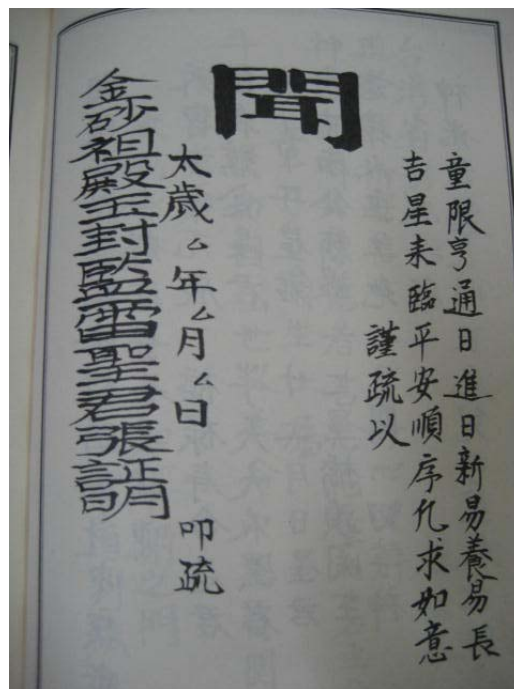 童限亨通日進日新易養易長
吉星来臨平安順序凢求如意
謹疏以
聞
太歲厶年厶月厶日 叩疏
金砂祖殿玉封監雷聖君張証明